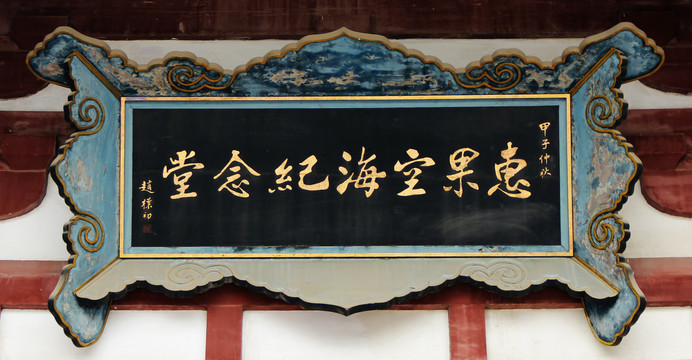 甲子仲秋
惠果空海紀念堂
趙樸初